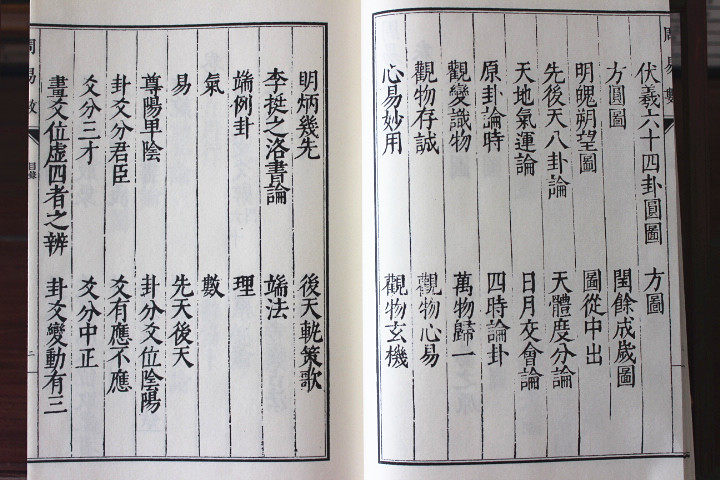 周易數
伏羲六十四卦圓圖 方圖
方圓圖 閏餘成歲圖
明魄朔望圖 圖從中出
先後天八卦論 天體度分論
天地氣運論 日月交會論
原卦論時 四時論卦
觀變識物 萬物歸一
觀物存誠 觀物心易
心易妙用 觀物玄機
明炳幾先 後天軌策歌
李挺之洛書論 端法
端例卦 理
氣 數
易 先天後天
尊陽卑陰 卦分爻位陰陽
卦爻分君臣 爻有應不應
爻分三才 爻分中正
畫爻位虛四者之辨 卦爻變動有三
周易數 目錄 二